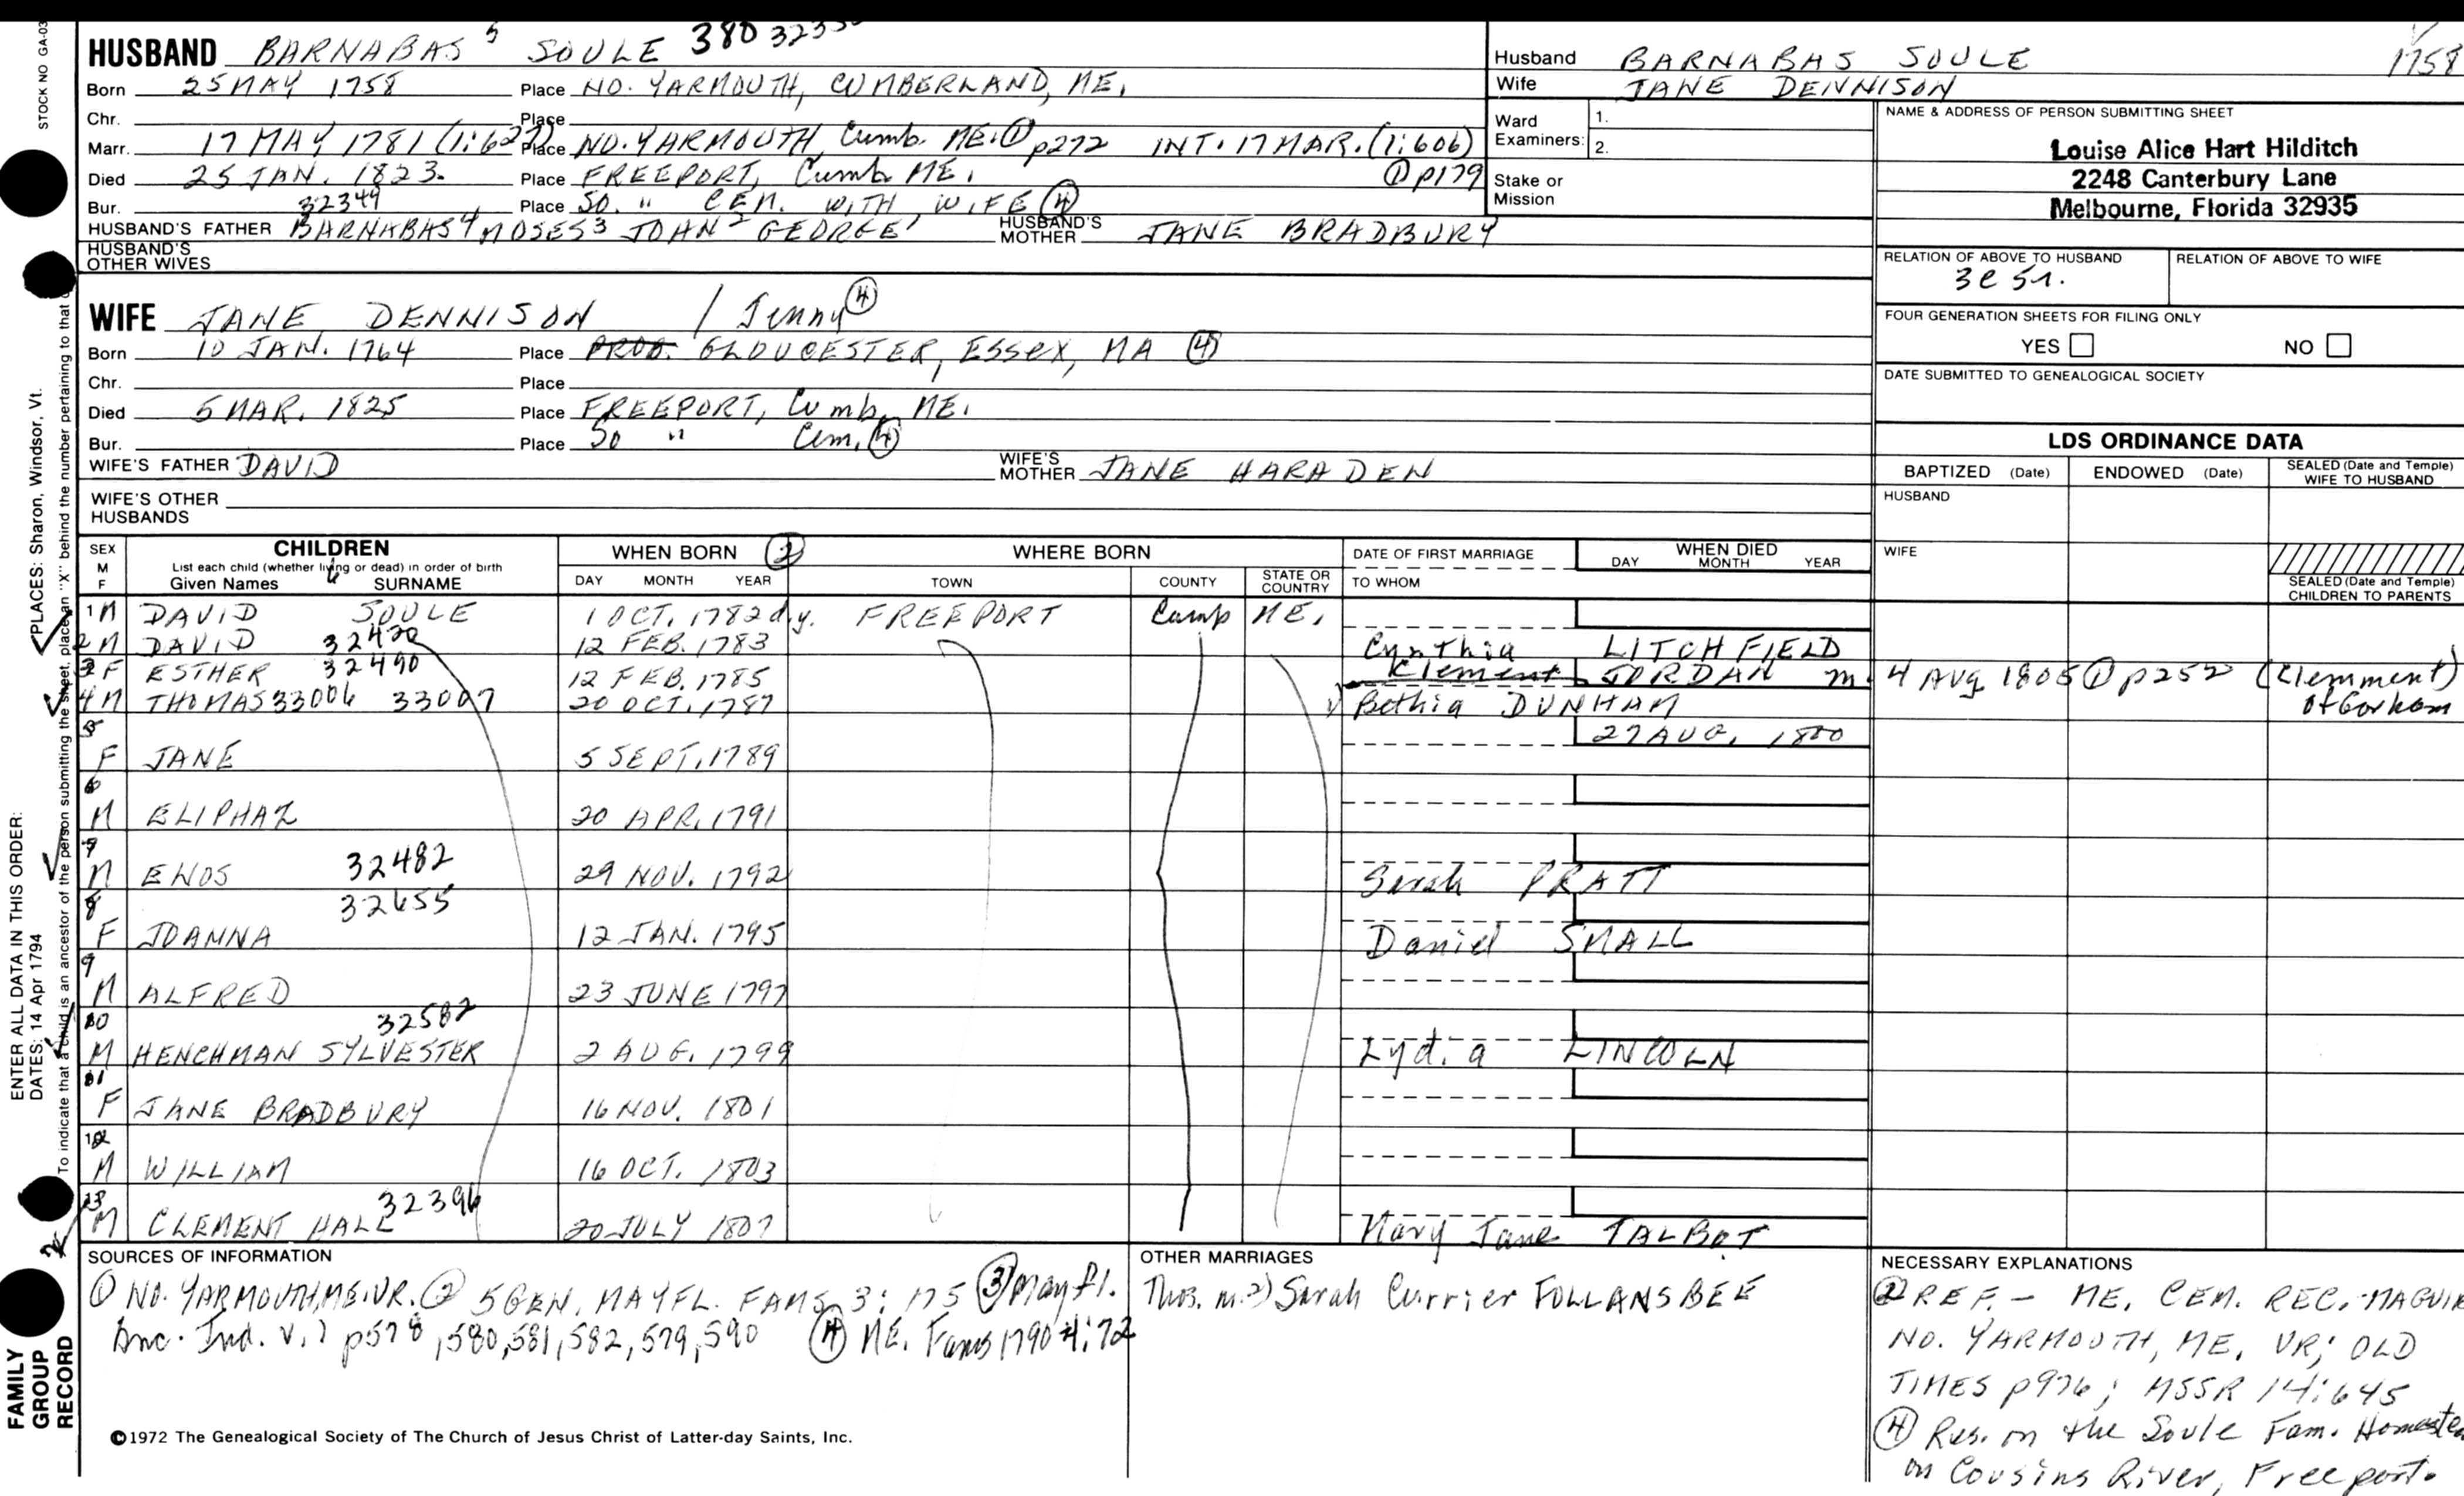 HUSBAND BARNABAS 5 SOULE 380
Born 25 MAY 1758 Place NO. YARMOUTH, CUMBERLAND, ME.
Chr. Place
Marr. 17 MAY 1781 (1:627) Place NO. YARMOUTH, Cumb. ME. ① p272 INT. 17 MAR. (1:606)
Died 25 JAN. 1823. Place FREEPORT, Cumb. ME. ① p179
Bur. Place SO. " CEM. WITH WIFE ④
32349
HUSBAND'S FATHER BARNABAS 4 MOSES 3 JOHN 2 GEORGE 1 HUSBAND'S MOTHER JANE BRADBURY
HUSBAND'S OTHER WIVES
WIFE JANE DENNISON / Jenny ④
Born 10 JAN. 1764 Place PROB. GLOUCESTER, ESSEX, MA ④
Chr. Place
Died 5 MAR. 1825 Place FREEPORT, Cumb. ME.
Bur. Place SO " Cem. ④
WIFE'S FATHER DAVID WIFE'S MOTHER JANE HARADEN
WIFE'S OTHER HUSBANDS
Husband BARNABAS SOULE 1758
Wife JANE DENNISON
Ward Examiners: 1.
2.
Stake or Mission
NAME & ADDRESS OF PERSON SUBMITTING SHEET
Louise Alice Hart Hilditch
2248 Canterbury Lane
Melbourne, Florida 32935
RELATION OF ABOVE TO HUSBAND RELATION OF ABOVE TO WIFE
FOUR GENERATION SHEETS FOR FILING ONLY
YES NO
DATE SUBMITTED TO GENEALOGICAL SOCIETY
LDS ORDINANCE DATA
BAPTIZED (Date) ENDOWED (Date) SEALED (Date and Temple) WIFE TO HUSBAND
HUSBAND
WIFE
SEALED (Date and Temple) CHILDREN TO PARENTS
SEX M F CHILDREN WHEN BORN ② WHERE BORN DATE OF FIRST MARRIAGE WHEN DIED
List each child (whether living or dead) in order of birth
Given Names SURNAME DAY MONTH YEAR TOWN COUNTY STATE OR COUNTRY TO WHOM DAY MONTH YEAR
1 M DAVID SOULE 1 OCT. 1782 d.y. FREEPORT Cumb ME.
2 M DAVID 32420 12 FEB. 1783 Cynthia LITCHFIELD
3 F ESTHER 32490 12 FEB. 1785 Klement JORDAN m. 4 Aug 1805 ① p252 (Clemment) of Gorham
4 M THOMAS 33006 33007 20 OCT. 1787 Bethia DUNHAM
5 F JANE 5 SEPT. 1789 27 AUG. 1800
6 M ELIPHAZ 20 APR. 1791
7 M ENOS 32482 29 NOV. 1792 Sarah PRATT
8 F JOANNA 32655 12 JAN. 1795 Daniel SMALL
9 M ALFRED 23 JUNE 1797
10 M HENCHMAN SYLVESTER 32582 2 AUG. 1799 Lydia LINCOLN
11 F JANE BRADBURY 16 NOV. 1801
12 M WILLIAM 16 OCT. 1803
13 M CLEMENT HALE 32396 20 JULY 1807 Mary Jane TALBOT
SOURCES OF INFORMATION
① NO. YARMOUTH, ME. VR. ② 5 GEN. MAYFL. FAMS 3: 175 ③ Mayfl.
Anc. Ind. v. 2 p578, 580, 581, 582, 579, 590 ④ ME. Fams 1790 4:72
OTHER MARRIAGES
Thos. m. 2) Sarah Currier FOLLANSBEE
NECESSARY EXPLANATIONS
② REF. - ME. CEM. REC. - MAGUIRE
NO. YARMOUTH, ME. VR; OLD
TIMES p976; MSSR 14:645
④ Res. on the Soule Fam. Homestea
on Cousins River, Freeport.
©1972 The Genealogical Society of The Church of Jesus Christ of Latter-day Saints, Inc.
STOCK NO GA-03
PLACES: Sharon, Windsor, Vt.
To indicate that a child is an ancestor of the person submitting the sheet, place an "X" behind the number pertaining to that
ENTER ALL DATA IN THIS ORDER:
DATES: 14 Apr 1794
FAMILY
GROUP
RECORD